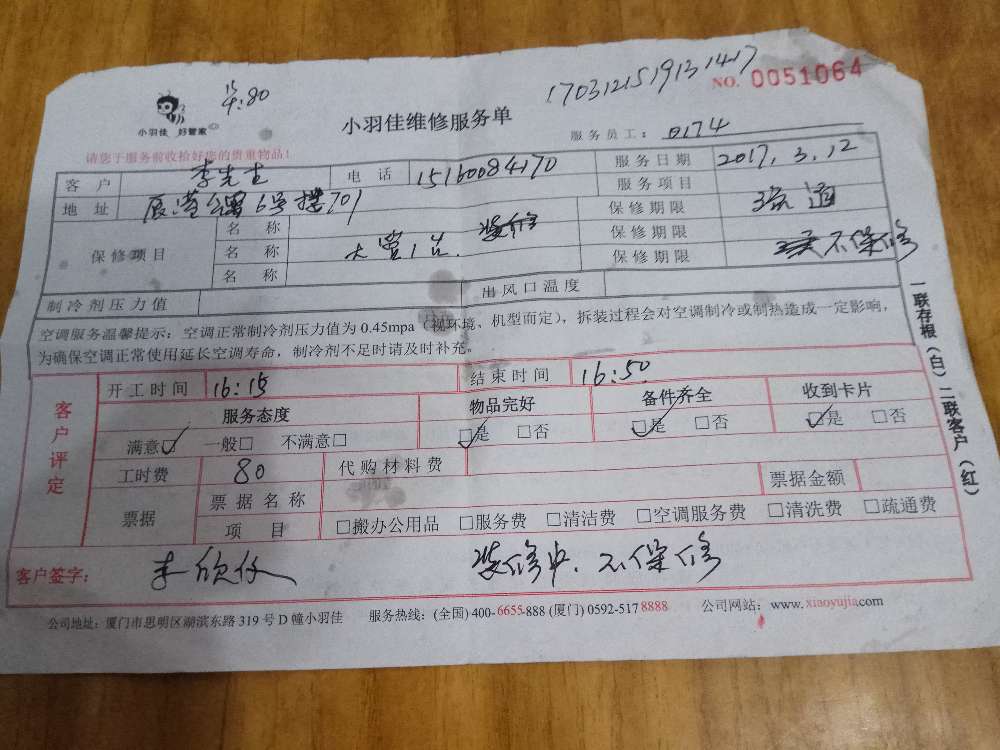 170312151913 1417
NO. 0051064
小羽佳 好管家
小羽佳维修服务单
服务员工： 0174
请您于服务前收拾好您的贵重物品！
客户 李先生 电话 15160084170 服务日期 2017.3.12
地址 6号楼701 服务项目 疏通
保修项目 名称 保修期限
名称 大管1次. 装修 保修期限 不保修
名称 保修期限
制冷剂压力值 出风口温度
空调服务温馨提示：空调正常制冷剂压力值为 0.45mpa（视环境、机型而定），拆装过程会对空调制冷或制热造成一定影响，
为确保空调正常使用延长空调寿命，制冷剂不足时请及时补充。
一联存根（白）二联客户（红）
客户评定
开工时间 16:15 结束时间 16:50
服务态度 物品完好 备件齐全 收到卡片
满意□ 一般□ 不满意□ □是 □否 □是 □否 □是 □否
工时费 80 代购材料费 票据金额
票据 票据名称
项目 □搬办公用品 □服务费 □清洁费 □空调服务费 □清洗费 □疏通费
客户签字： 装修中.不保修
公司地址：厦门市思明区湖滨东路 319 号 D 幢小羽佳 服务热线：(全国) 400-6655-888 (厦门) 0592-517 8888 公司网站：www.xiaoyujia.com